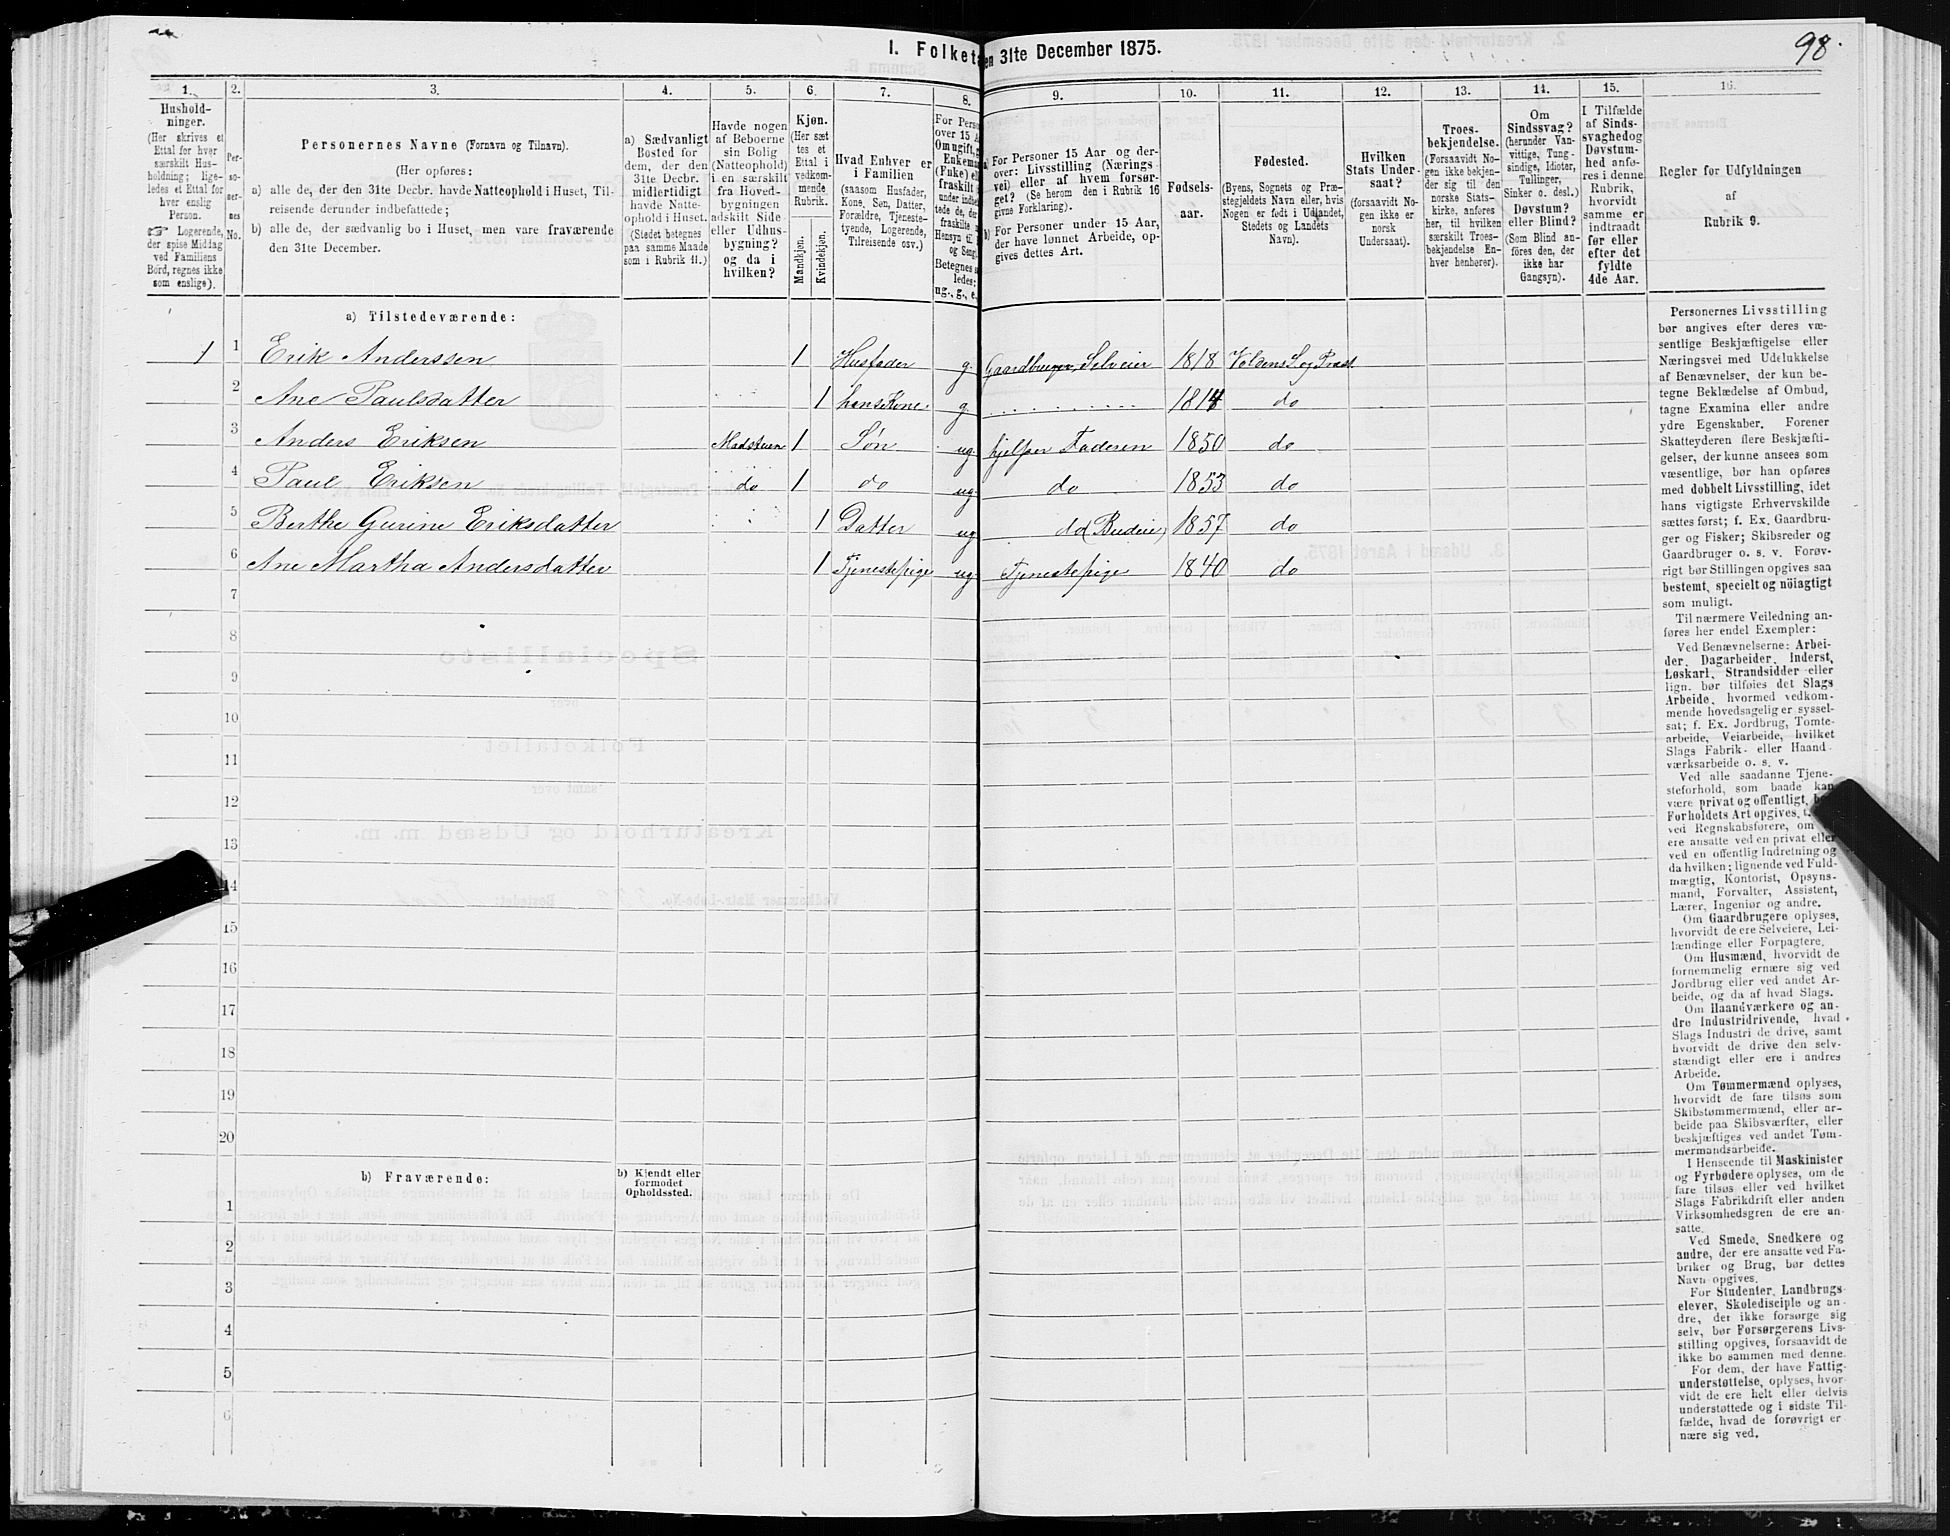 I. Folketæ
en 31te December 1875.
98.
1. 2. 3. 4. 5. 6. 7. 8. 9. 10. 11. 12. 13. 14. 15. 16.
Hushold-
ninger.
(Her skrives et
Ettal for hver
særskilt Hus-
holdning; lige-
ledes et Ettal for
hver enslig
Person.
☞ Logerende,
der spise Middag
ved Familiens
Bord, regnes ikke
som enslige).
Per-
so-
ner-
nes
No.
Personernes Navne (Fornavn og Tilnavn).
(Her opføres:
a) alle de, der den 31te Decbr. havde Natteophold i Huset, Til-
reisende derunder indbefattede;
b) alle de, der sædvanlig bo i Huset, men vare fraværende
den 31te December.
a) Sædvanligt
Bosted for
dem, der den
31te Decbr.
midlertidigt
havde Natte-
ophold i Huset.
(Stedet betegnes
paa samme Maade
som i Rubrik 11.)
Havde nogen
af Beboerne
sin Bolig
(Natteophold)
i en særskilt
fra Hoved-
bygningen
adskilt Side-
eller Udhus-
bygning?
og da i
hvilken?
Kjøn.
(Her sæt-
tes et
Ettal i
vedkom-
mende
Rubrik.
Mandkjøn.
Kvindekjøn.
Hvad Enhver er
i Familien
(saasom Husfader,
Kone, Søn, Datter,
Forældre, Tjeneste-
tyende, Logerende,
Tilreisende osv.)
For Perso
over 15 A
Om ugift, g
Enkeman
(Enke) ell
fraskilt
under indbe
tede de, de
fraskilte
Hensyn til
og Seng
Betegnes s
ledes:
ug., g., e.
a) For Personer 15 Aar og der-
over: Livsstilling (Nærings-
vei) eller af hvem forsør-
get? (Se herom den i Rubrik 16
givne Forklaring).
b) For Personer under 15 Aar,
der have lønnet Arbeide, op-
gives dettes Art.
Fødsels-
aar.
Fødested.
(Byens, Sognets og Præ-
stegjeldets Navn eller, hvis
Nogen er født i Udlandet,
Stedets og Landets
Navn).
Hvilken
Stats Under-
saat?
(forsaavidt No-
gen ikke er
norsk
Undersaat).
Troes-
bekjendelse.
(Forsaavidt No-
gen ikke bekjen-
der sig til den
norske Stats-
kirke, anføres
her, til hvilken
særskilt Troes-
bekjendelse En-
hver henhører).
Om
Sindssvag?
(herunder Van-
vittige, Tung-
sindige, Idioter,
Tullinger,
Sinker o. desl.)
Døvstum?
eller Blind?
(Som Blind an-
føres den, der
ikke har
Gangsyn).
I Tilfælde
af Sinds-
svaghedog
Døvstum-
hed anfø-
res i denne
Rubrik,
hvorvidt
samme er
indtraadt
før eller
efter det
fyldte
4de Aar.
Regler for Udfyldningen
af
Rubrik 9.
a) Tilstedeværende:
1 1 Erik Anderssen 1 Husfader g. Gaardbruger, Selveier 1818 Voldens S. og Præst.
2 Ane Paulsdatter 1 hans Kone g. 1814 do
3 Anders Eriksen Madstuen 1 Søn ug. hjelper Faderen 1850 do
4 Paul Eriksen do 1 do ug. do 1853 do
5 Berthe Gurine Eriksdatter 1 Datter ug do (Budeie) 1857 do
6 Ane Martha Andersdatter 1 Tjenestepige ug. Tjenestepige 1840 do
7
8
9
10
11
12
13
14
15
16
17
18
19
20
b) Fraværende:
b) Kjendt eller
formodet
Opholdssted.
1
2
3
4
5
6
Personernes Livsstilling
bør angives efter deres væ-
sentlige Beskjæftigelse eller
Næringsvei med Udelukkelse
af Benævnelser, der kun be-
tegne Beklædelse af Ombud,
tagne Examina eller andre
ydre Egenskaber. Forener
Skatteyderen flere Beskjæfti-
gelser, der kunne ansees som
væsentlige, bør han opføres
med dobbelt Livsstilling, idet
hans vigtigste Erhvervskilde
sættes først; f. Ex. Gaardbru-
ger og Fisker; Skibsreder og
Gaardbruger o. s. v. Forøv-
rigt bør Stillingen opgives saa
bestemt, specielt og nöiagtigt
som muligt.
Til nærmere Veiledning an-
føres her endel Exempler:
Ved Benævnelserne: Arbei-
der, Dagarbeider, Inderst,
Løskarl, Strandsidder eller
lign. bør tilføies det Slags
Arbeide, hvormed vedkom-
mende hovedsagelig er syssel-
sat; f. Ex. Jordbrug, Tomte-
arbeide, Veiarbeide, hvilket
Slags Fabrik- eller Haand-
værksarbeide o. s. v.
Ved alle saadanne Tjene-
steforhold, som baade kan
være privat og offentligt,
Forholdets Art opgives,
ved Regnskabsførere, om
ere ansatte ved en privat eller
ved en offentlig Indretning og
da hvilken; lignende ved Fuld-
mægtig, Kontorist, Opsyns-
mand, Forvalter, Assistent,
Lærer, Ingeniør og andre.
Om Gaardbrugere oplyses,
hvorvidt de ere Selveiere, Lei-
lændinge eller Forpagtere.
Om Husmænd, hvorvidt de
fornemmelig ernære sig ved
Jordbrug eller ved andet Ar-
beide, og da af hvad Slags.
Om Haandværkere og an-
dre Industridrivende, hvad
Slags Industri de drive, samt
hvorvidt de drive den selv-
stændigt eller ere i andres
Arbeide.
Om Tømmermænd oplyses,
hvorvidt de fare tilsøs som
Skibstømmermænd, eller ar-
beide paa Skibsværfter, eller
beskjæftiges ved andet Tøm-
mermandsarbeide.
I Henseende til Maskinister
og Fyrbødere oplyses, om de
fare tilsøs eller ved hvilket
Slags Fabrikdrift eller anden
Virksomhedsgren de ere an-
satte.
Ved Smede, Snedkere og
andre, der ere ansatte ved Fa-
briker og Brug, bør dettes
Navn opgives.
For Studenter, Landbrugs-
elever, Skoledisciple og an-
dre, der ikke forsørge sig
selv, bør Forsørgerens Livs-
stilling opgives, forsaavidt de
ikke bo sammen med denne.
For dem, der have Fattig-
understøttelse, oplyses, hvor-
vidt de ere helt eller delvis
understøttede og i sidste Til-
fælde, hvad de forøvrigt er-
nære sig ved.